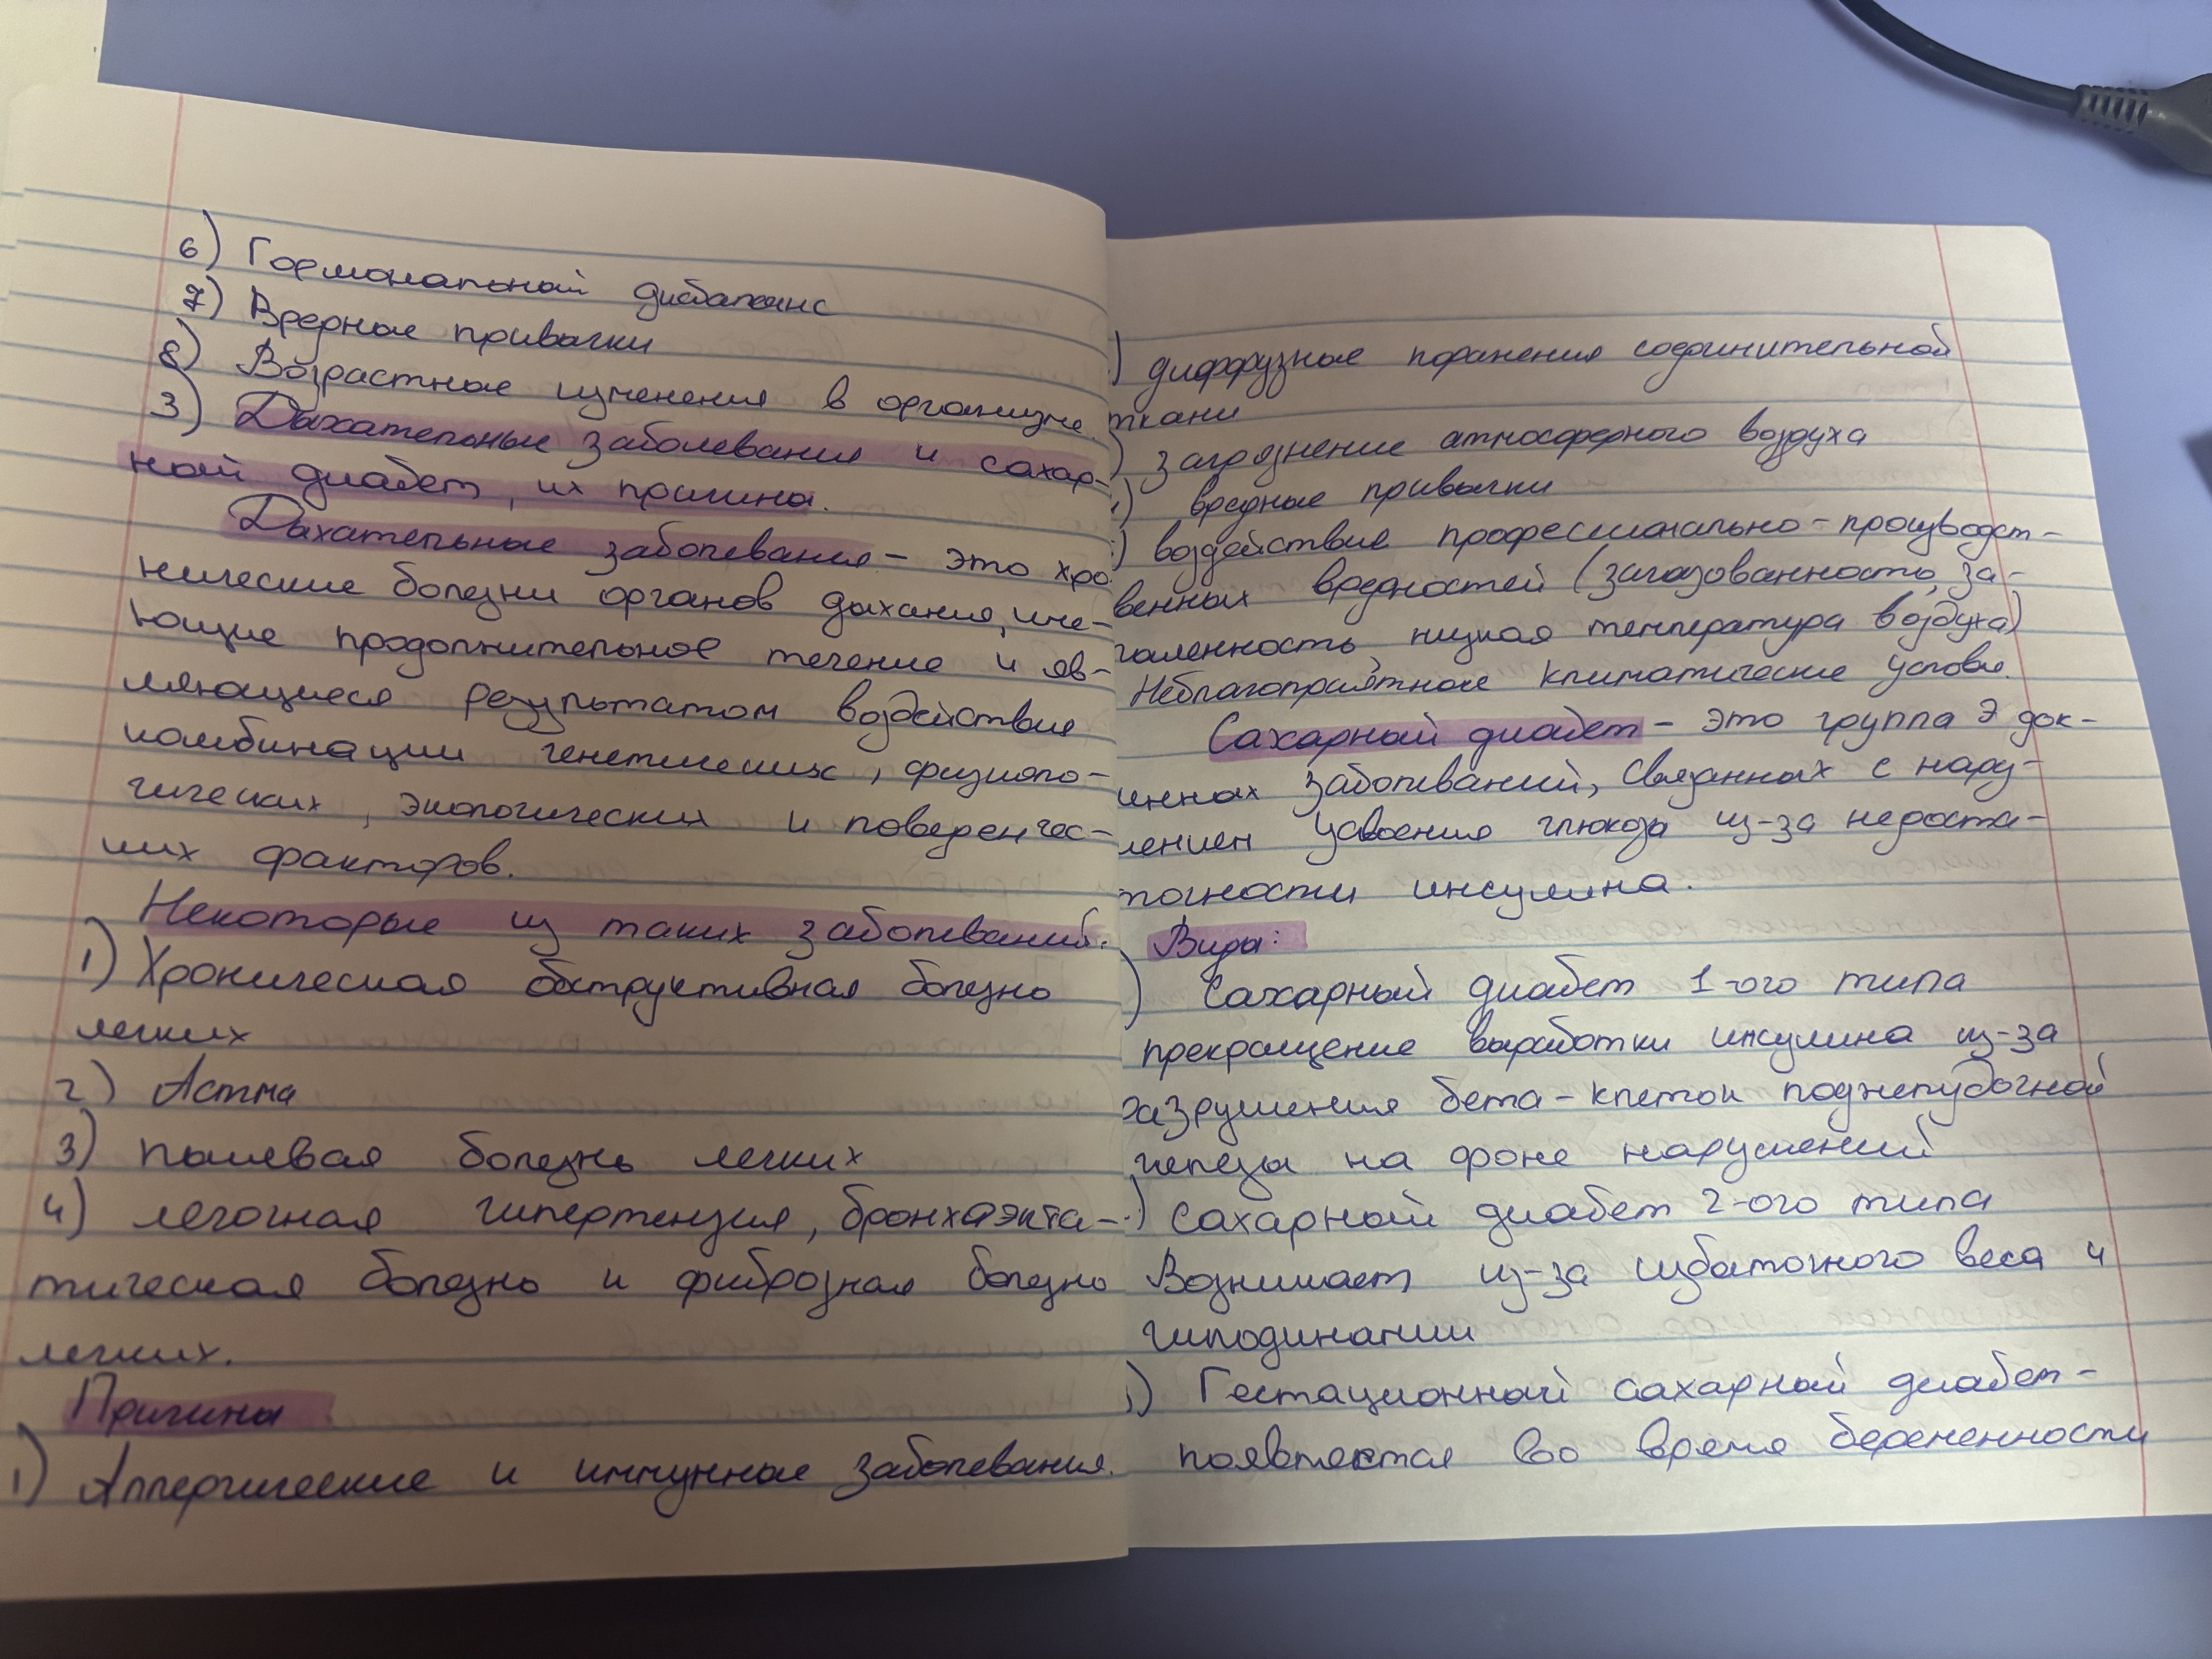 6) Гормональный дисбаланс
7) Вредные привычки
8) Возрастные изменения в организме.
3) Дыхательные заболевания и сахар-
ный диабет, их причины.
Дыхательные заболевания - это хро
нические болезни органов дыхания, име-
ющие продолжительное течение и яв-
ляющиеся результатом воздействия
комбинации генетических, физиоло-
гических, экологических и поведенчес-
ких факторов.
Некоторые из таких заболеваний:
1) Хроническая обструктивная болезнь
легких
2) Астма
3) пылевая болезнь легких
4) легочная гипертензия, бронхаэкта-
тическая болезнь и фиброзная болезнь
легких.
Причины
1) Аллергические и иммунные заболевания.
) диффузные поражения соединительной
ткани
) загрязнение атмосферного воздуха
) вредные привычки
) воздействие профессионально-производст-
венных вредностей (загазованность, за-
пыленность, низкая температура воздуха)
Неблагоприятные климатические условия.
Сахарный диабет - это группа эндок-
инных заболеваний, связанных с нару-
лением усвоения глюкозы из-за недоста-
точности инсулина.
Виды:
) Сахарный диабет 1-ого типа
прекращение выработки инсулина из-за
разрушения бета-клеток поджелудочной
железы на фоне нарушений
) Сахарный диабет 2-ого типа
Возникает из-за избыточного веса и
гиподинамии
) Гестационный сахарный диабет -
появляется во время беременности